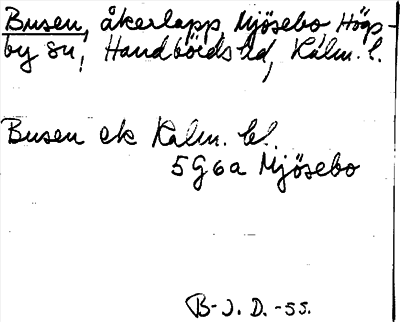 Busen, åkerlapp, Mjösebo, Hög-
by sn, Handbörds hd, Kalm. l.
Busen ek Kalm. bl.
5G6a Mjösebo
B-J. D. -55.